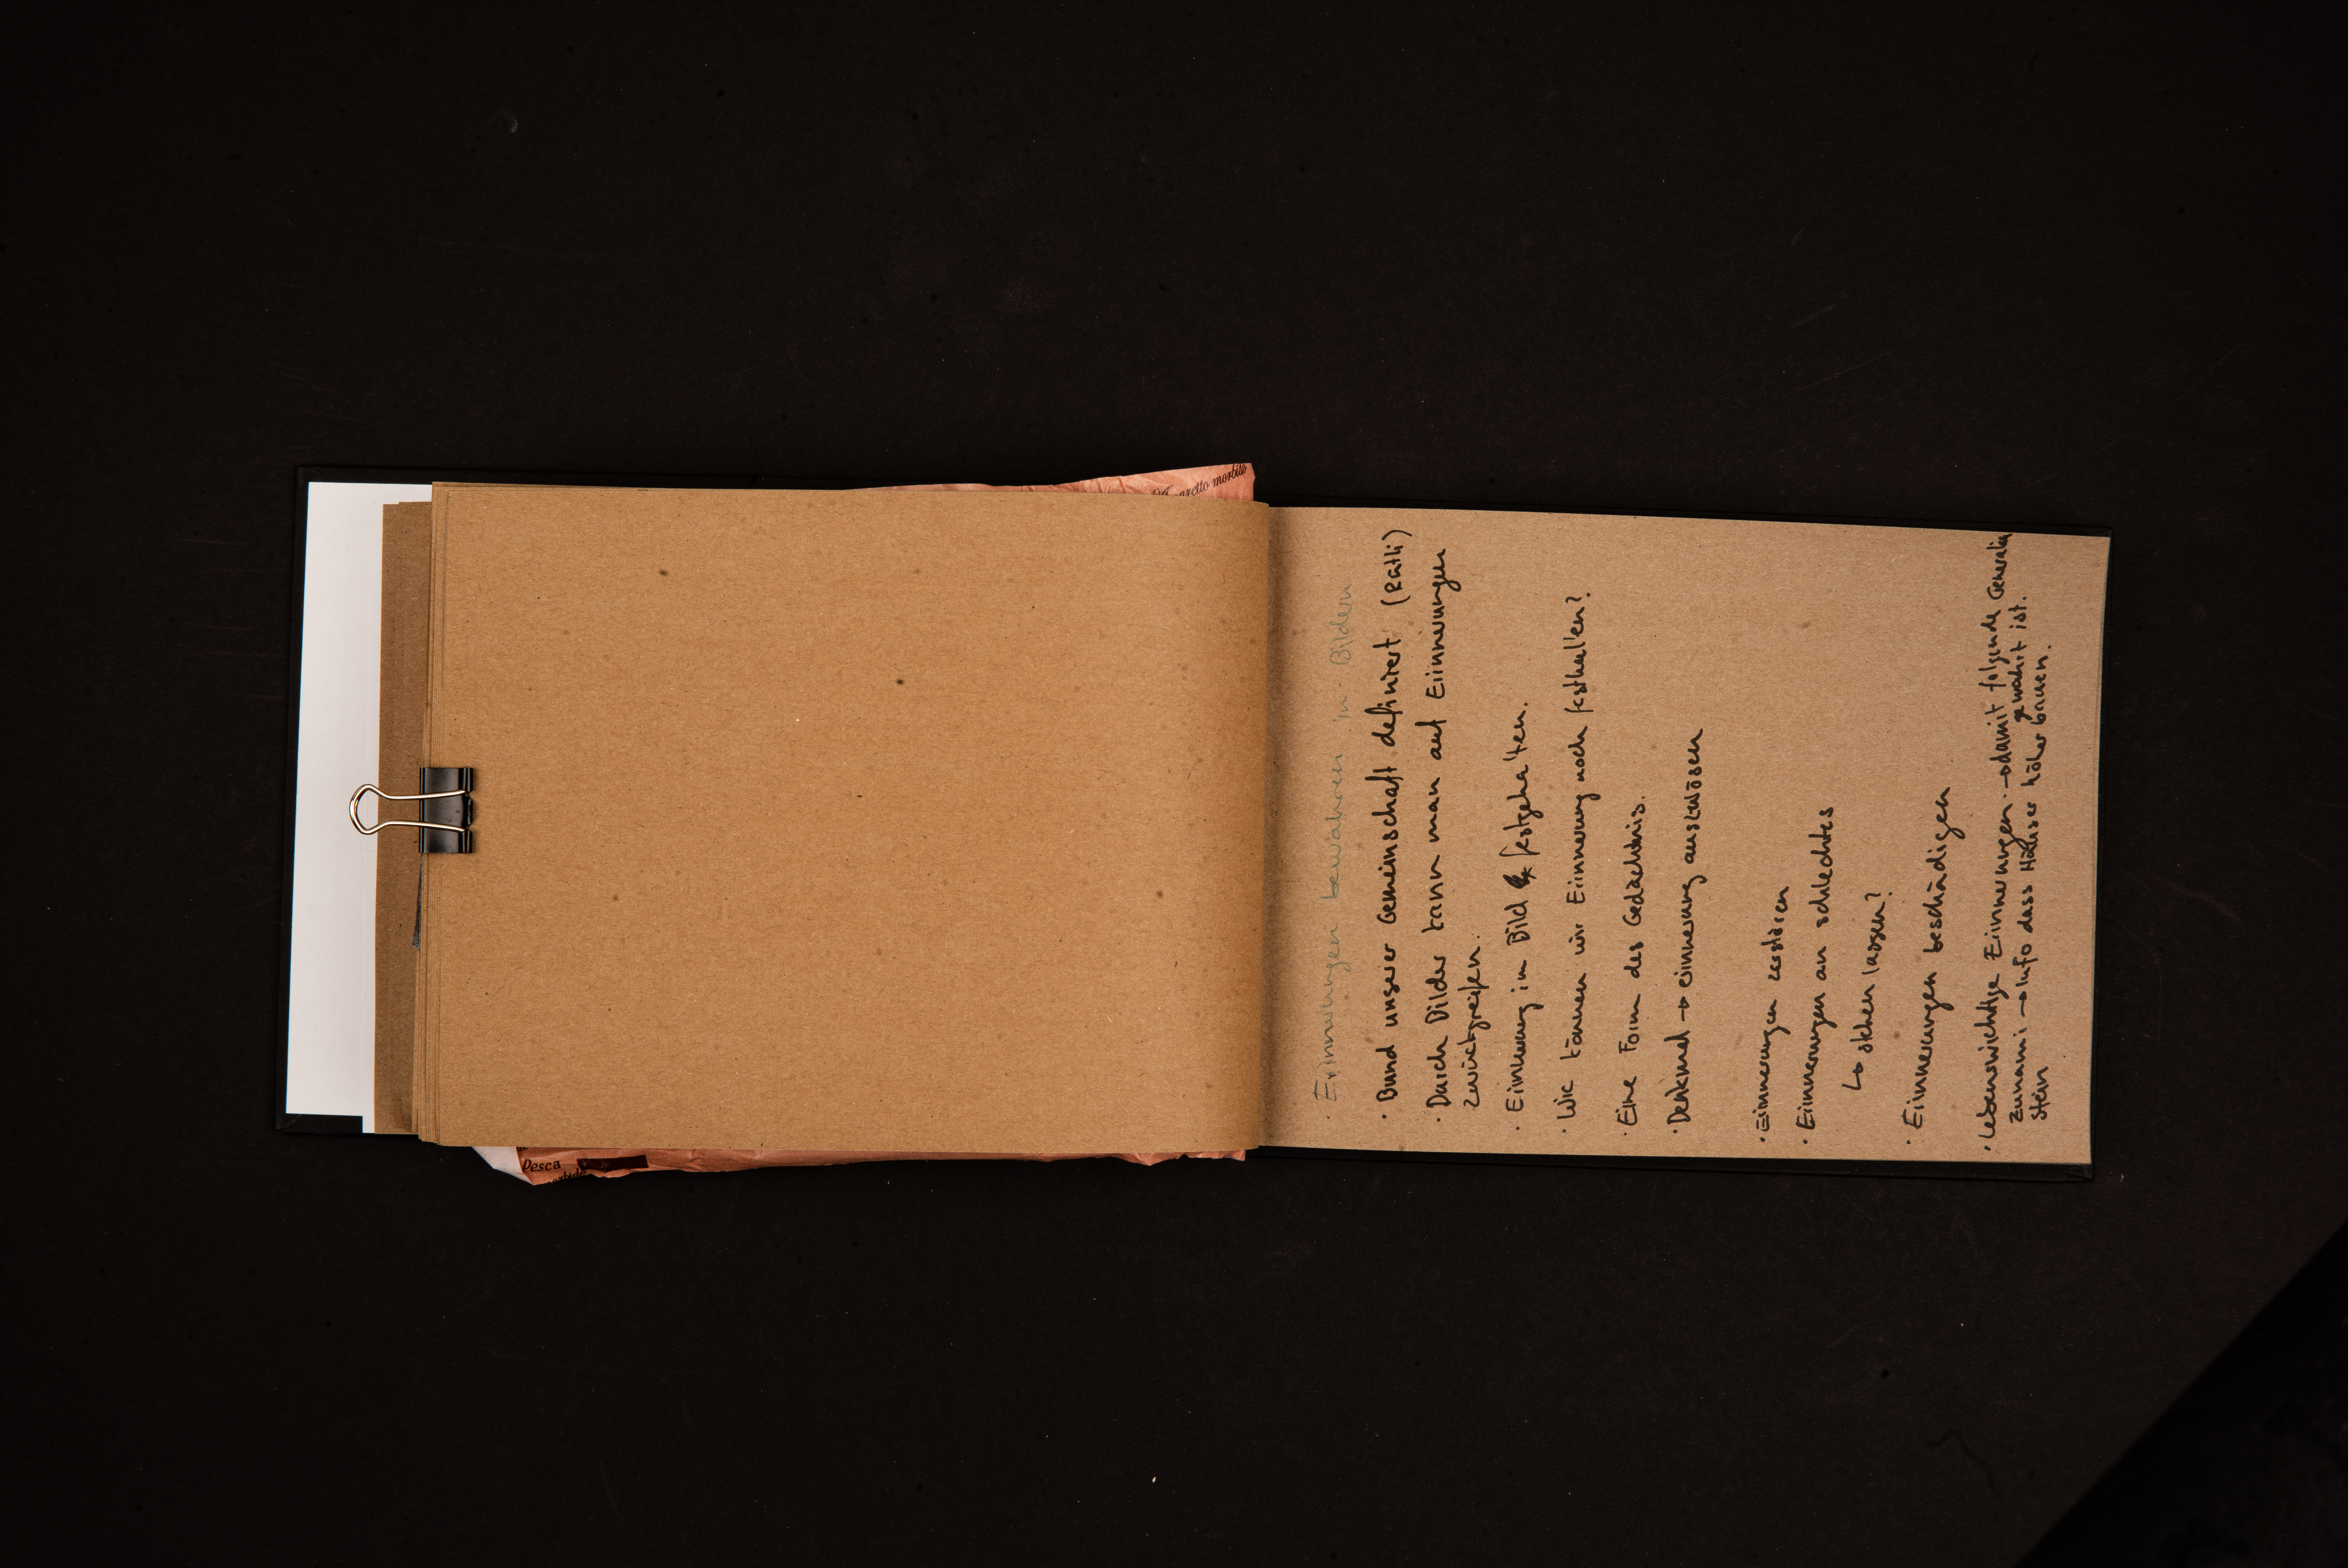 · Erinnerungen bewahren in Bildern
· Bund unserer Gemeinschaft definiert (Rütli)
· Durch Bilder kann man auf Erinnerungen
zurückgreifen.
· Erinnerung im Bild festgehalten.
· Wie können wir Erinnerung noch festhalten?
· Eine Form des Gedächtnis.
· Denkmal → erinnerung auszulösen
· Erinnerungen zerstören
· Erinnerungen an schlechtes
↳ stehen lassen?
· Erinnerungen beschädigen
· Lebenswichtige Erinnerungen. → damit folgende Generation
gewahrt ist.
Zunami → Info dass Häuser höher bauen.
stein
Amaretto morbido
Pesca